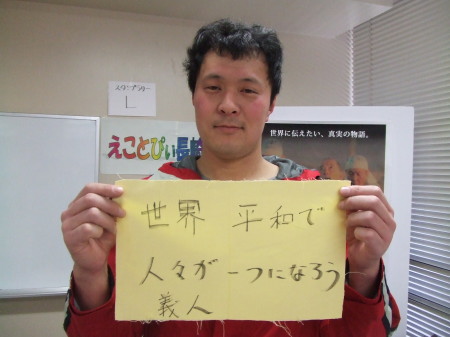 スタンプシター
L
えことぴぃ長
世界に伝えたい、真実の物語。
世界 平和で
人々が 一つになろう
義人